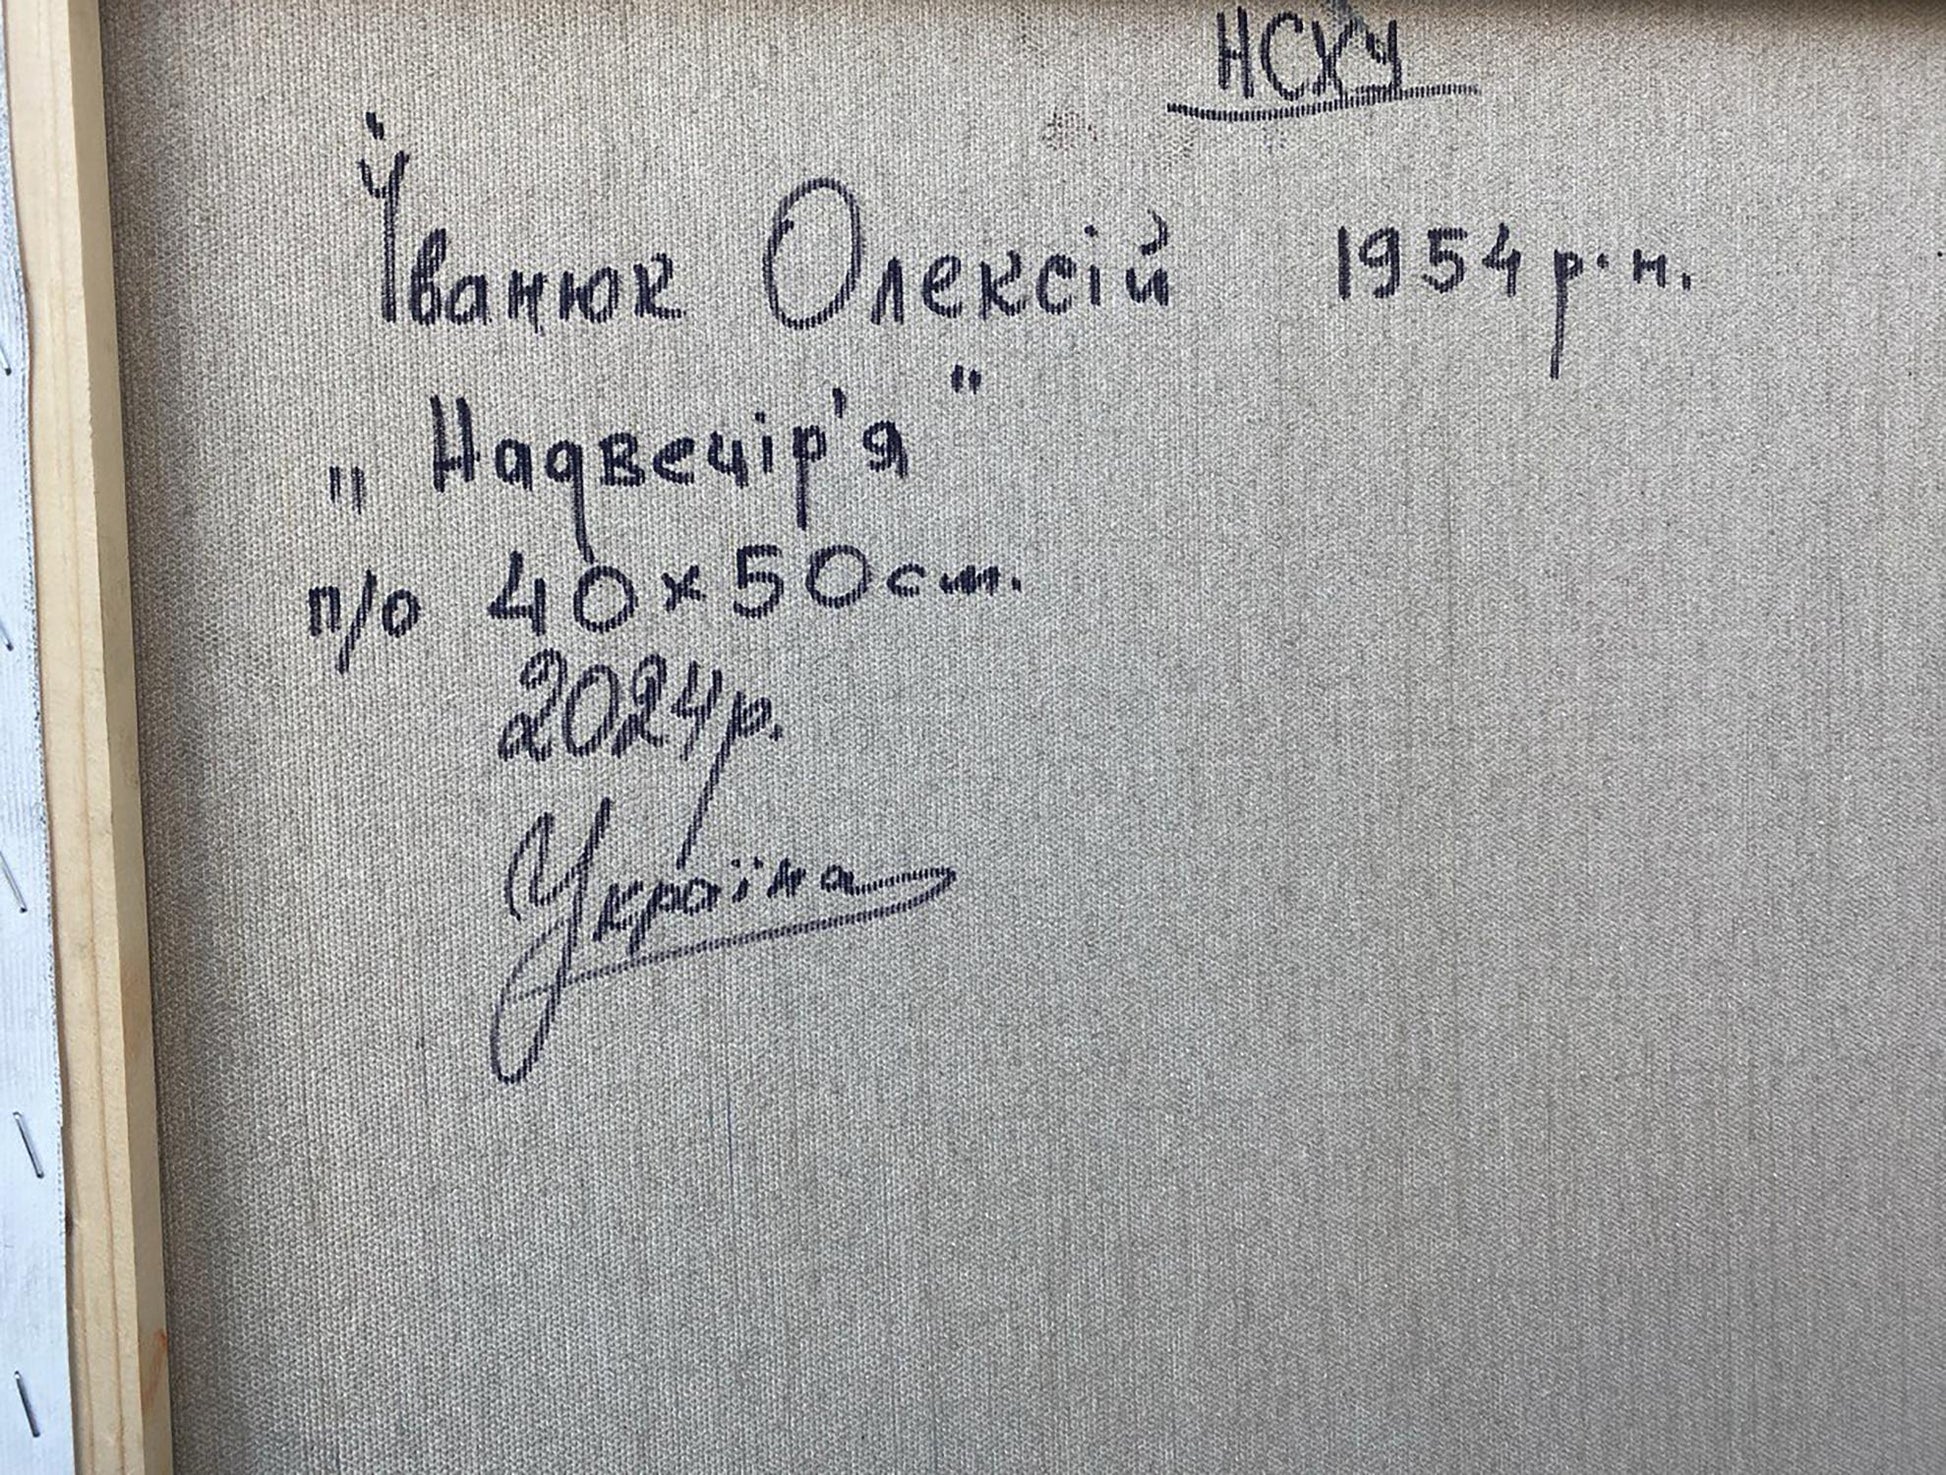 НСХУ
Іванюк Олексій 1954 р.н.
„Надвечір'я"
п/о 40х50см.
2024р.
Україна